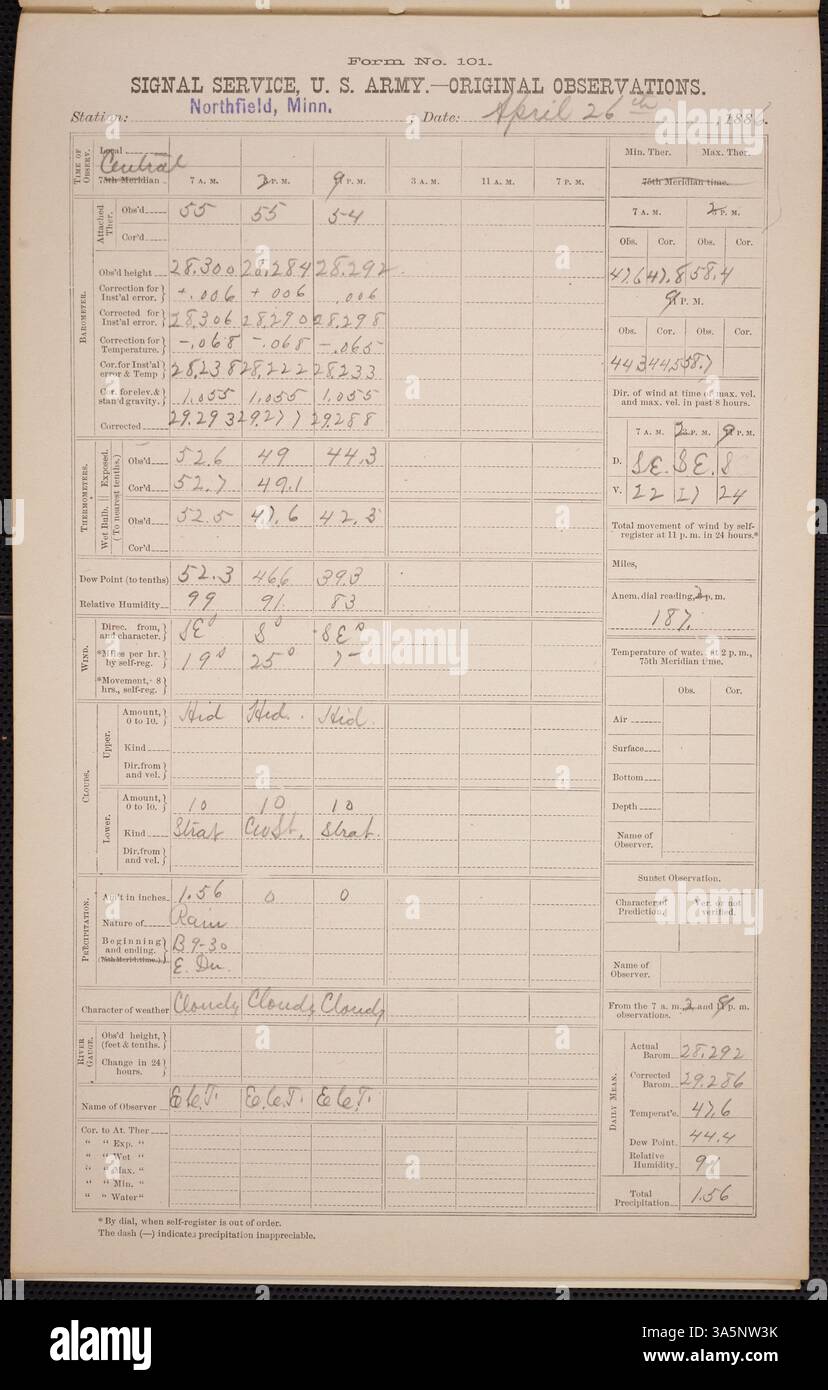 Form No. 101.
SIGNAL SERVICE, U. S. ARMY.—ORIGINAL OBSERVATIONS.
Station: Northfield, Minn. , Date: April 26th , 1886.
TIME OF OBSERV.
Local
Central
75th Meridian 7 A. M. 2 P. M. 9 P. M. 3 A. M. 11 A. M. 7 P. M.
BAROMETER.
Attached Ther.
Obs'd 55 55 54
Cor'd
Obs'd height 28.300 28.284 28.292
Correction for Inst'al error. +.006 +.006 .006
Corrected for Inst'al error. 28.306 28.290 28.298
Correction for Temperature. -.068 -.068 -.065
Cor. for Inst'al error & Temp 28.238 28.222 28.233
Cor. for elev. & stan'd gravity. 1.055 1.055 1.055
Corrected 29.293 29.277 29.288
THERMOMETERS.
Wet Bulb. || Exposed.
(To nearest tenths.)
Obs'd 52.6 49 44.3
Cor'd 52.7 49.1
Obs'd 52.5 47.6 42.3
Cor'd
Dew Point (to tenths) 52.3 46.6 39.3
Relative Humidity 99 91 83
WIND.
Direc. from, and character. SE S SE
*Miles per hr. by self-reg. 19 25 7
*Movement, 8 hrs., self-reg.
CLOUDS.
Upper.
Amount, 0 to 10. Hid Hid. Hid.
Kind
Dir. from and vel.
Lower.
Amount, 0 to 10. 10 10 10
Kind Strat CuSt. Strat.
Dir. from and vel.
PRECIPITATION.
Am't in inches 1.56 0 0
Nature of Rain
Beginning and ending. B 9-30
(75th Merid. time.) E. Dn.
Character of weather Cloudy Cloudy Cloudy
RIVER GAUGE.
Obs'd height, (feet & tenths.
Change in 24 hours.
Name of Observer E.C.T. E.C.T. E.C.T.
Cor. to At. Ther
" " Exp. "
" " Wet "
" " Max. "
" " Min. "
" " Water "
* By dial, when self-register is out of order.
The dash (—) indicates precipitation inappreciable.
Min. Ther. Max. Ther.
75th Meridian time.
7 A. M. 2 P. M.
Obs. Cor. Obs. Cor.
47.6 47.8 58.4
9 P. M.
Obs. Cor. Obs. Cor.
44.3 44.5 58.7
Dir. of wind at time of max. vel. and max. vel. in past 8 hours.
7 A. M. 2 P. M. 9 P. M.
D. SE. SE. S
V. 22 27 24
Total movement of wind by self-register at 11 p. m. in 24 hours.*
Miles,
Anem. dial reading, 2 p. m.
187.
Temperature of water at 2 p. m., 75th Meridian time.
Obs. Cor.
Air
Surface
Bottom
Depth
Name of Observer.
Sunset Observation.
Character of Prediction. Ver. or not verified.
Name of Observer.
From the 7 a. m. 2 and 9 p. m. observations.
DAILY MEAN.
Actual Barom 28.292
Corrected Barom 29.286
Temperat'e. 47.6
Dew Point 44.4
Relative Humidity 91
Total Precipitation 1.56
alamy
Image ID: 3A5NW3K
www.alamy.com